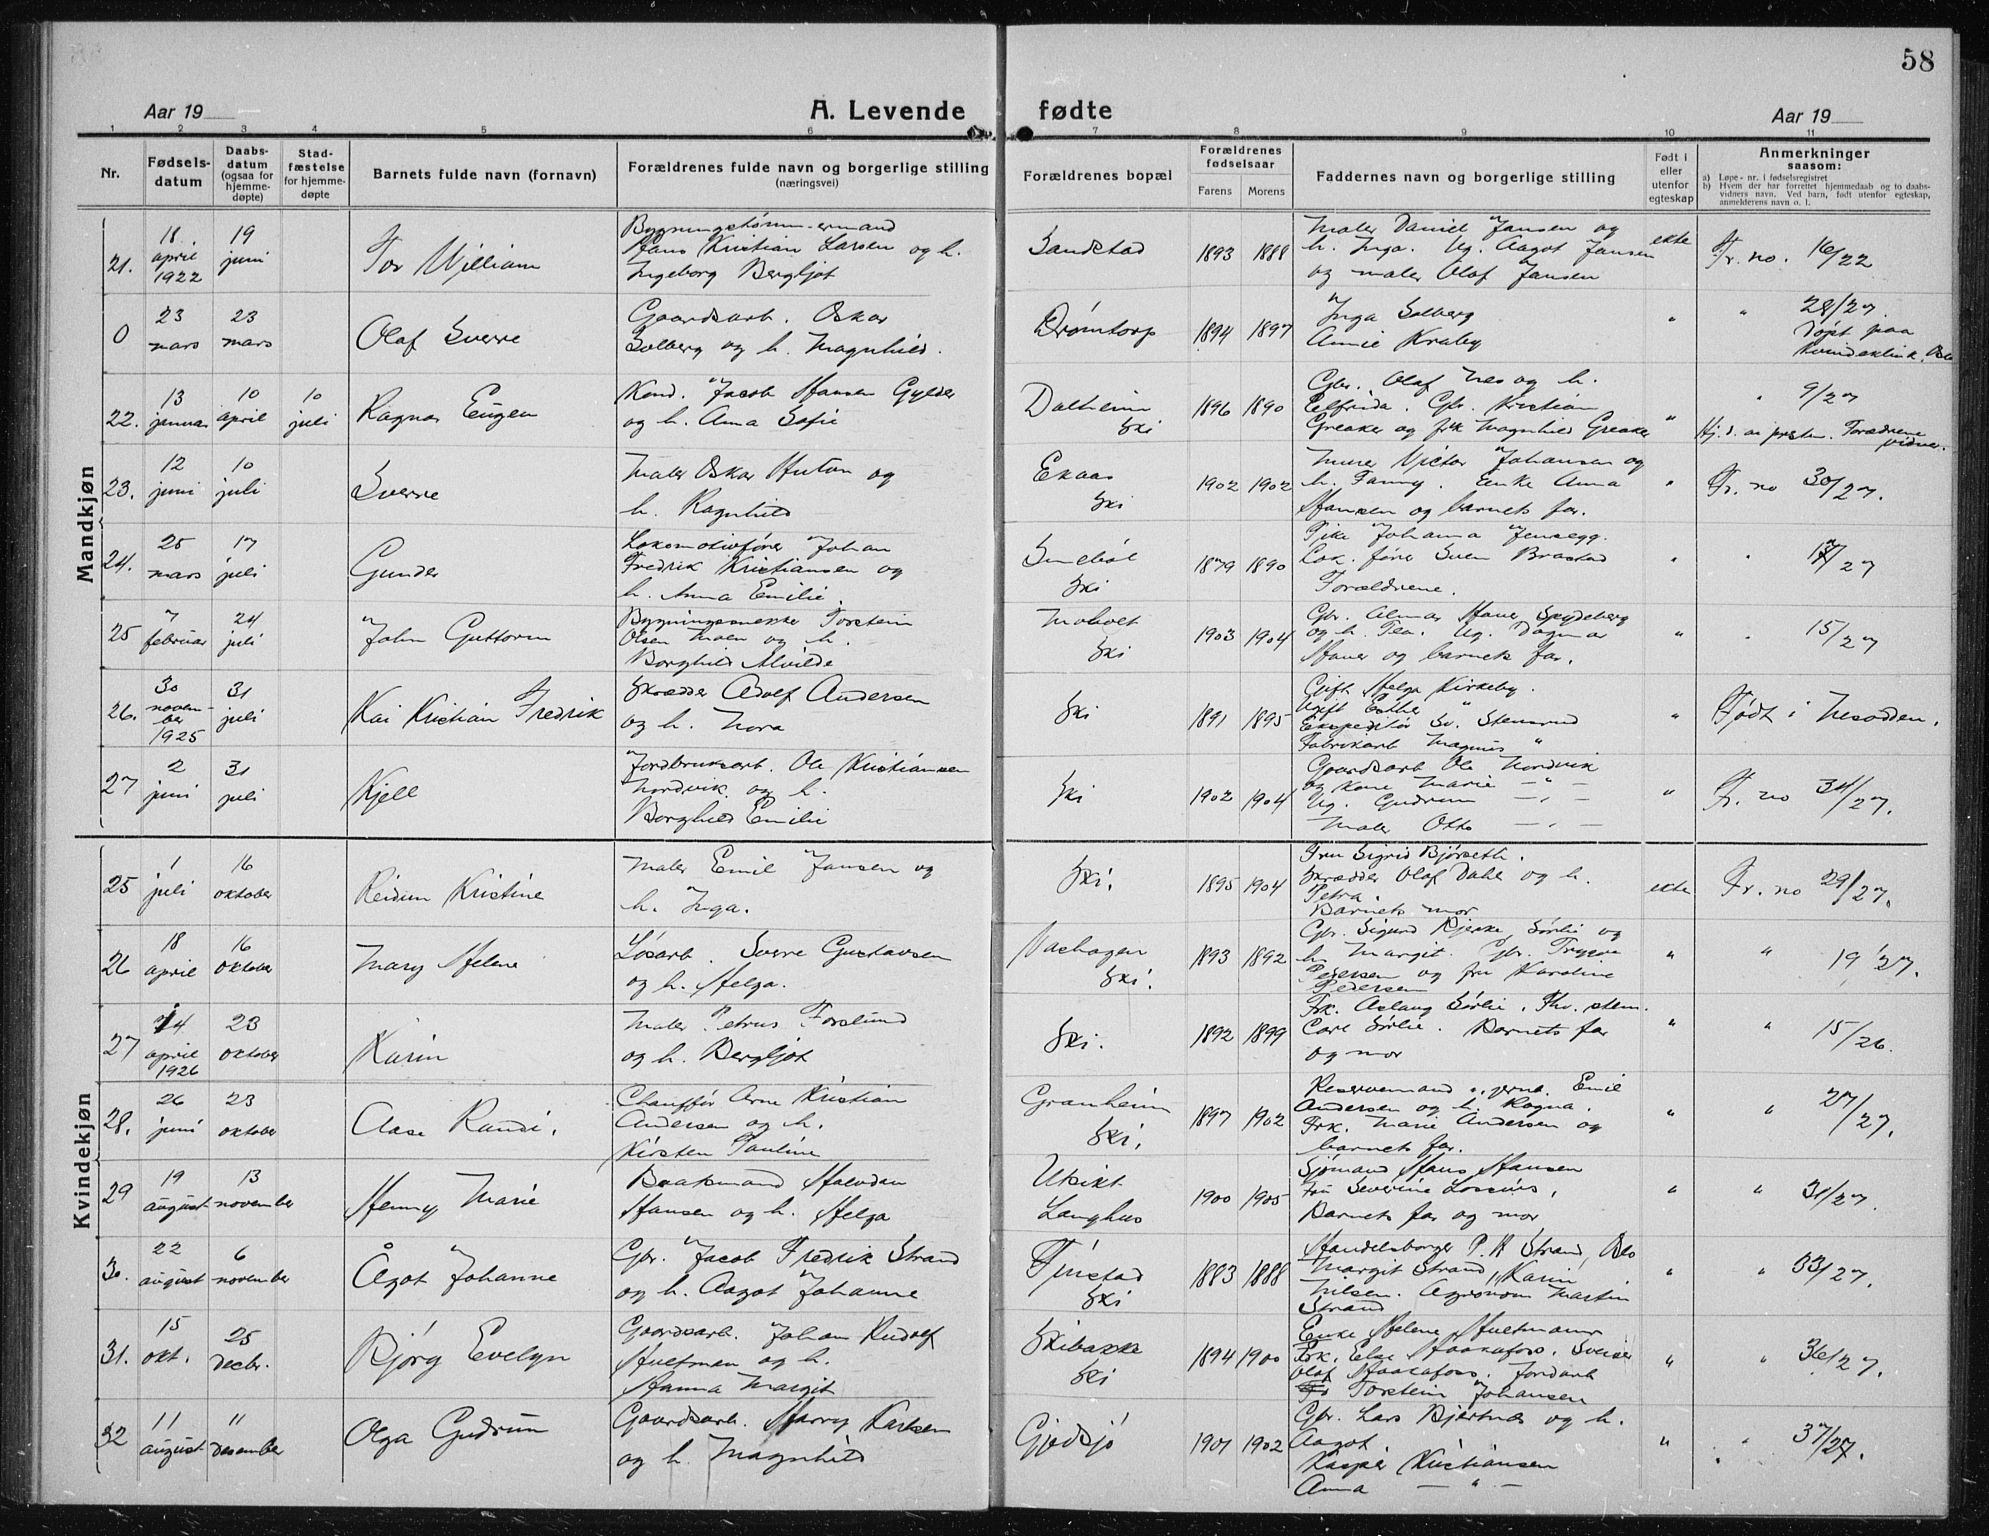 58
Aar 19
A. Levende fødte
Aar 19
1 2 3 4 5 6 7 8 9 10 11
Nr.
Fødsels-
datum
Daabs-
datum
(ogsaa for
hjemme-
døpte)
Stad-
fæstelse
for hjemme-
døpte
Barnets fulde navn (fornavn)
Forældrenes fulde navn og borgerlige stilling
(næringsvei)
Forældrenes bopæl
Forældrenes
fødselsaar
Farens Morens
Faddernes navn og borgerlige stilling
Født i
eller
utenfor
egteskap
Anmerkninger
saasom:
a) Løpe-nr. i fødselsregistret
b) Hvem der har forrettet hjemmedaab og to daabs-
vidners navn. Ved barn, født utenfor egteskap,
anmelderens navn o. l.
Mandkjøn
21.
18
april
1922
19
juni
Tor William
Hans Kristian Larsen og h.
Ingeborg Bergljot
Sandstad
1893 1888
Maler Daniel Jansen og
h. Inga. Ug. Aagot Jansen
og maler Olaf Jansen
ekte
Fr. no. 16/22
0
23
mars
23
mars
Olaf Sverre
Gaardsarb. Oskar
Solberg og h. Magnhild.
Drømtorp
1894 1897
Inga Solberg
Annie Kraby
"
" 28/27
Døpt paa
kvindeklinik, Oslo
22.
13
januar
10
april
10
juli
Ragnar Eugen
Kond. Jacob Hansen Gylder
og h. Anna Sofie
Dalheim
Ski
1896 1890
Gbr. Olaf Nes og h.
Elfrida. Gbr. Kristian
Greaker og frk Magnhild Greaker
"
" 9/27
Hj.d. av presten. Forældrene
vidner.
23.
12
juni
10
juli
Sverre
Maler Oskar Huton og
h. Ragnhild
Ekaas
Ski
1902 1902
Murer Victor Johansen og
h. Fanny. Enke Anna
Hansen og barnets far.
"
Fr. no 30/27.
24.
25
mars
17
juli
Gunder
Lokomotivfører Johan
Fredrik Kristiansen og
h. Anna Emilie.
Smebøl
Ski
1879 1890
Pike Johanna Jensegg.
Lok. fører Sven Brastad
Forældrene.
"
" 17/27
25
7
februar
24
juli
John Guttorm
Bygningssnekker Torstein
Olsen Moen og h.
Borghild Alvilde
Moholt
Ski
1903 1904
Gbr. Almar Haner Spydeberg
og h. Tea. Ug. Dagmar
Haner og barnets far.
"
" 15/27
26.
30
novem-
ber
1925
31
juli
Kai Kristian Fredrik
Skrædder Adolf Andersen
og h. Nora
Ski
1891 1895
Gift Helga Kirkeby.
Ugift Esther "
Ekspeditør Sv. Stensrud
Fabrikarb Magnus "
"
Født i Nesodden.
27
2
juni
31
juli
Kjell
Jordbruksarb. Ole Kristiansen
Nordvik og h.
Borghild Emilie
Ski
1902 1904
Gaardsarb Ole Nordvik
og kone Marie — " —
Ug. Gudrun — " —
Maler Otto — " —
"
Fr. no 34/27.
Kvindekjøn
25
1
juli
16
oktober
Reidun Kristine
Maler Emil Jansen og
h. Inga.
Ski.
1895 1904
Fru Sigrid Bjørseth.
Skrædder Olaf Dahl og h.
Petra.
Barnets mor
ekte
Fr. no 29/27.
26
18
april
16
oktober
Mary Helene
Løsarb. Sverre Gustavsen
og h. Helga.
Ski.
1893 1892
Gbr. Sigurd Bjerke Sørli og
h. Margit. Gbr. Trygve
Pedersen og fru Karoline
Pedersen
"
" 19/27.
27
14
april
1926
23
oktober
Karin
Maler Petrus Forslund
og h. Bergljot
Ski.
1892 1899
Frk. Aslaug Sørlie. Thv. stem.
Carl Sørlie. Barnets far
og mor
"
" 15/26.
28.
26
juni
23
oktober
Aase Randi.
Chauffør Arne Kristian
Andersen og h.
Kirsten Pauline
Granheim
Ski.
1897 1902
Reservemand v. jernb. Emil
Andersen og h. Ragna.
Frk. Marie Andersen og
barnets far.
"
" 27/27.
29
19
august
13
november
Henny Marie
Baatsmand Halvdan
Hansen og h. Helga
Utsikt
Langhus
1900 1905
Sjømand Hans Hansen
Fru Severine Lossius,
Barnets far og mor
"
" 31/27.
30.
22
august
6
november
Ågot Johanne
Gbr. Jacob Fredrik Strand
og h. Aagot Johanne
Finstad
Ski
1883 1888
Handelsborger P. A Strand, Oslo
Margit Strand, Karin
Nilsen. Agronom Martin
Strand
"
" 33/27.
31.
15
okt.
25
decbr.
Bjørg Evelyn
Gaardsarb. Johan Rudolf
Hultman og h.
Hanna Margit
Skibakke
Ski
1894 1900
Enke Helene Hultmann
Frk. Else Haakafoss. Sveiser
Olaf Haakafoss. Jordarb
Torstein Johansen
"
" 36/27.
32
11
august
11
desember
Olga Gudrun
Gaardsarb. Harry Karlsen
og h. Magnhild
Gjedsjø
1901 1902
Gbr. Lars Bjertnæs og h.
Aagot.
Kasper Kristiansen
Anna — " —
"
" 37/27.